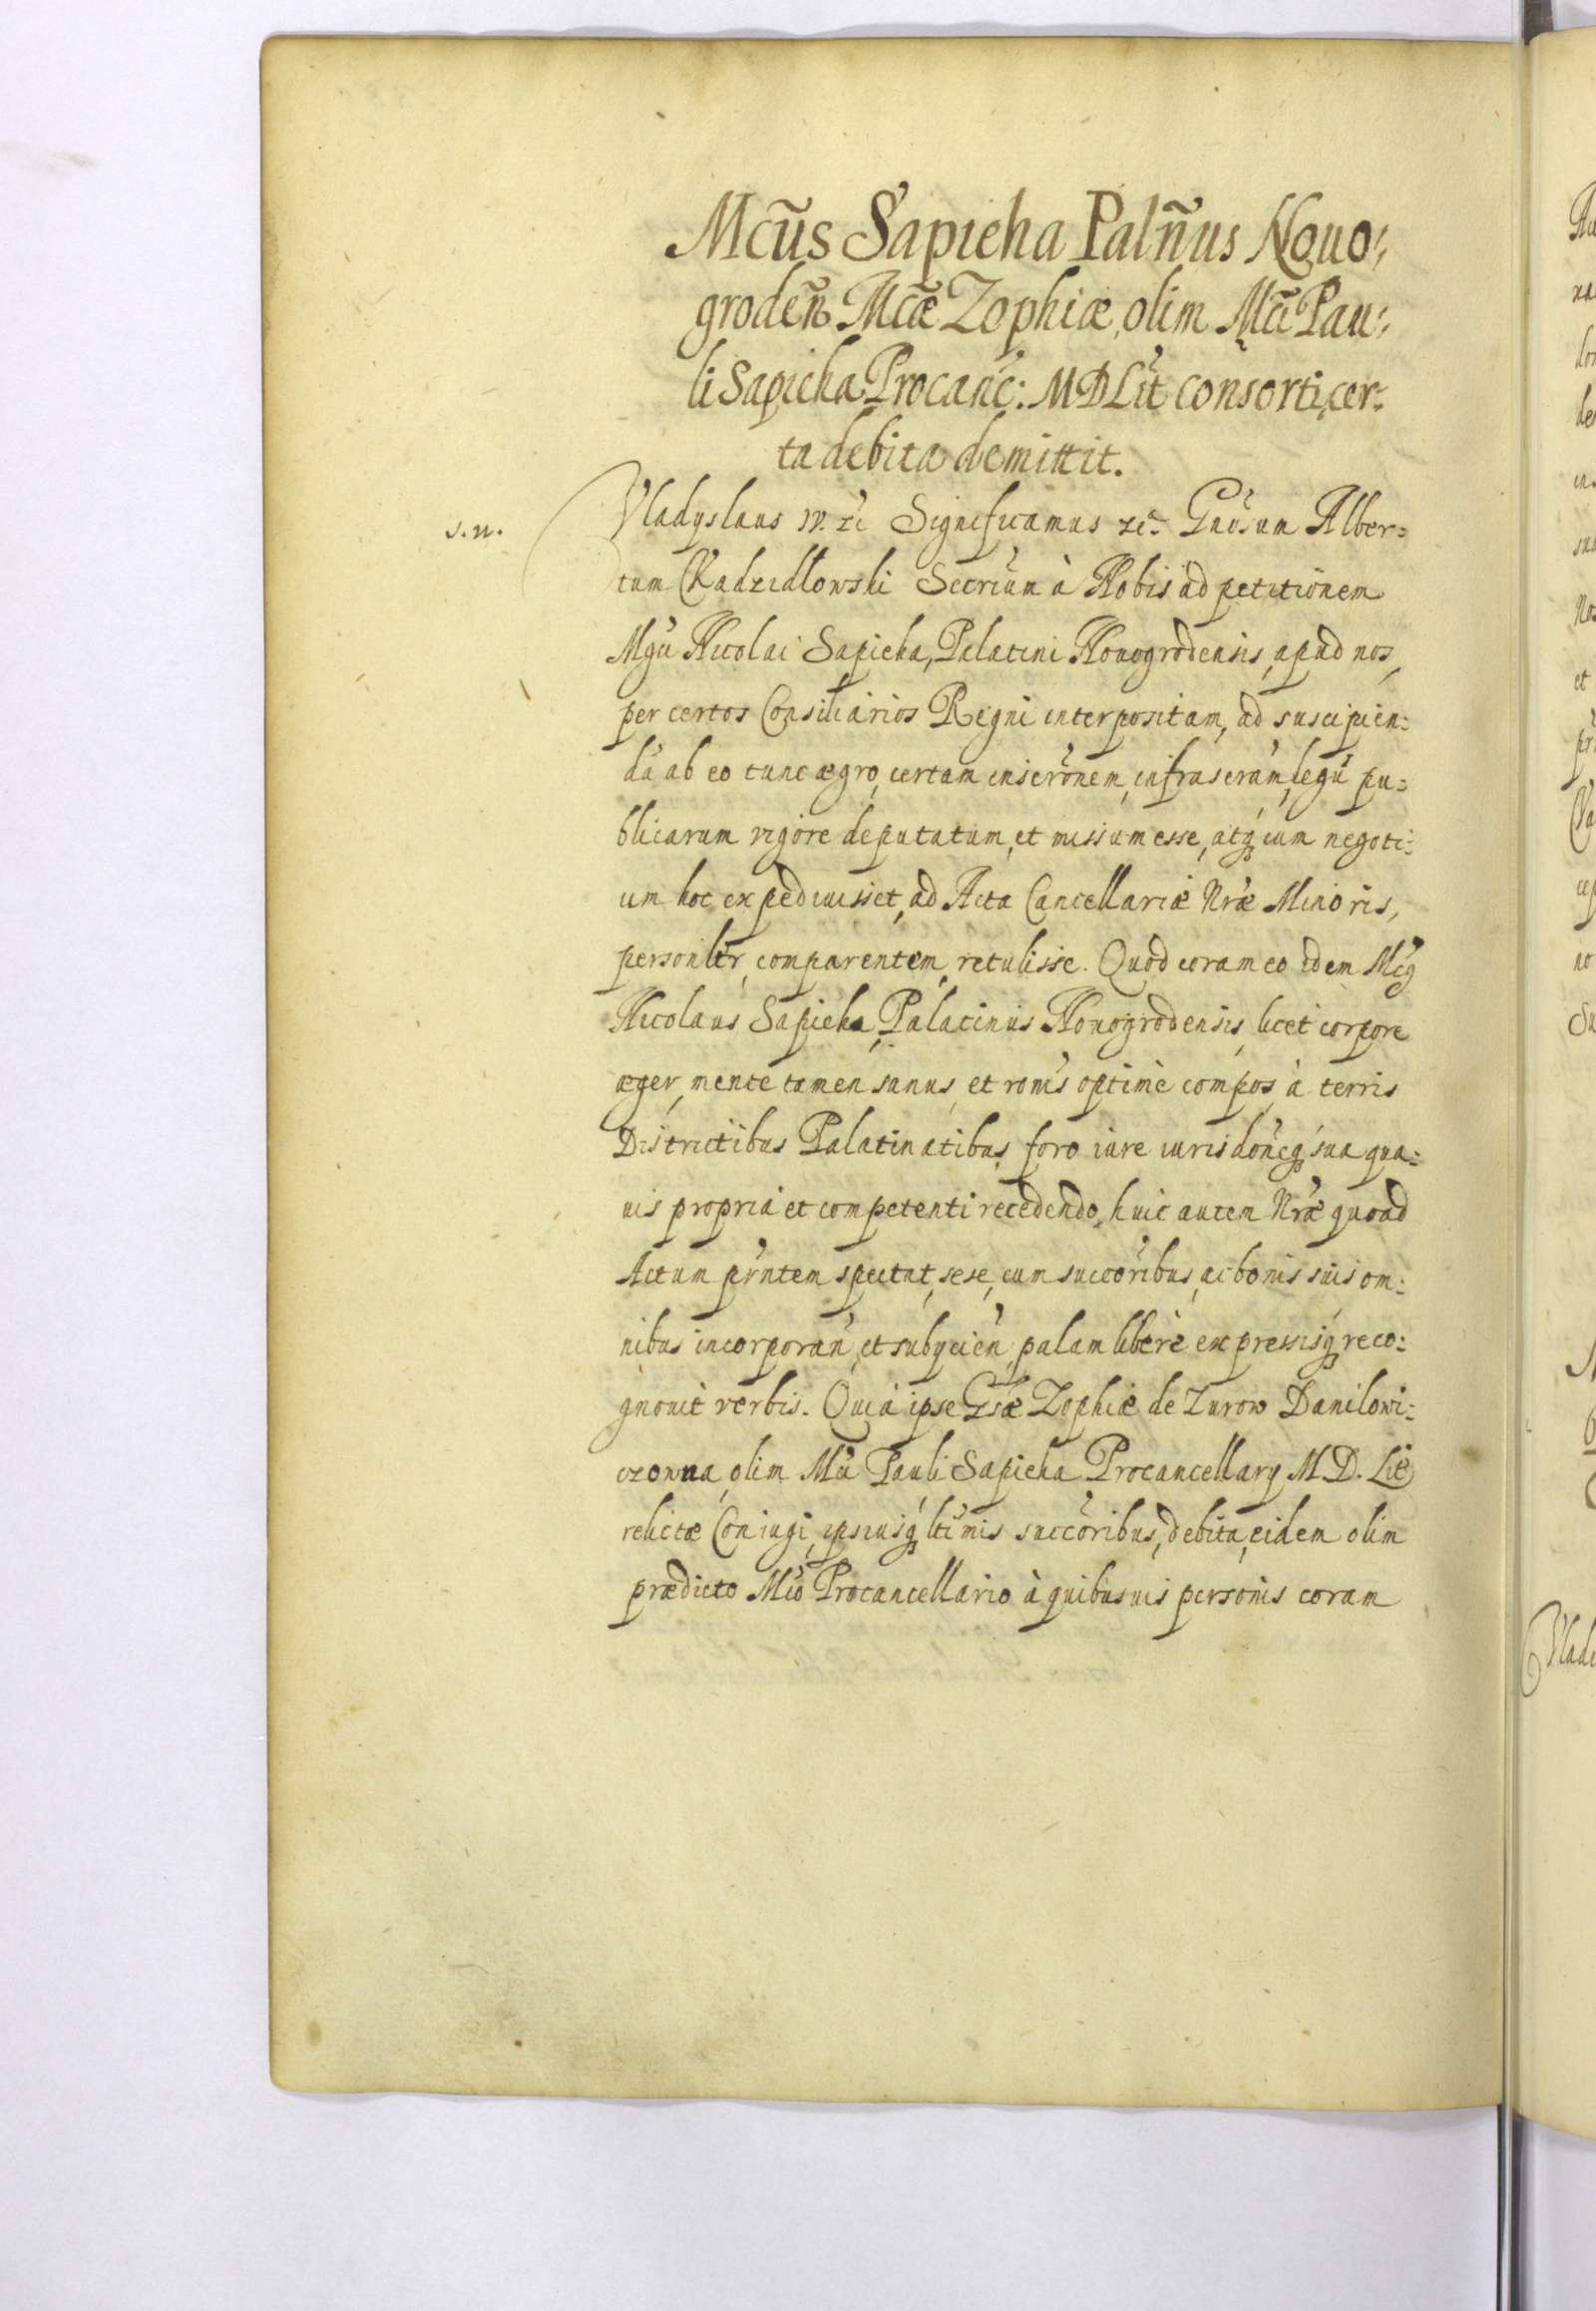 Mcũs Sapieha Palñus Nouo:
grodeñ Mcæ̃ Zophiæ, olim Mcĩ Pau:
li Sapieha Procanc: MDLit consorti, cer:
ta debita demittit.
s. n.
Vladyslaus IV. etc Significamus etc Gnosum Alber=
tum Kadzidłowski Secrium à Nobis ad petitionem
Mgci Nicolai Sapieha, Palatini Nouogrodensis, apud nos,
per certos Consiliarios Regni interpositam, ad suscipien:
dã ab eo tunc ægro, certam inscrõnem, infrascrãm, legũ pu=
blicarum vigore deputatum, et missum esse, atq cum negoti:
um hoc expediuisset, ad Acta Cancellariæ Nræ Minoris,
personlẽr comparentem, retulisse. Quod coram eo idem Mcg
Nicolaus Sapieha, Palatinus Nouogrodensis, licet corpore
æger, mente tamen sanus, et ronis optimè compos, à terris
Districtibus Palatinatibus, foro iure iurisdoneq sua qua:
uis propria et competenti recedendo, huic autem Nræ quoad
Actum pñntem spectat, sese, cum succõribus, ac bonis suis om:
nibus incorporan, et subÿcien, palam liberè expressisq reco:
gnouit verbis. Quia ipse Gsæ Zophiæ de Zurow Danilowi:
czowna, olim Mci Pauli Sapieha Procancellarÿ M.D. Lit
relictæ Coniugi, ipsiusq ltimis succõribus, debita, eidem olim
prædicto Mco Procancellario à quibusuis personis coram